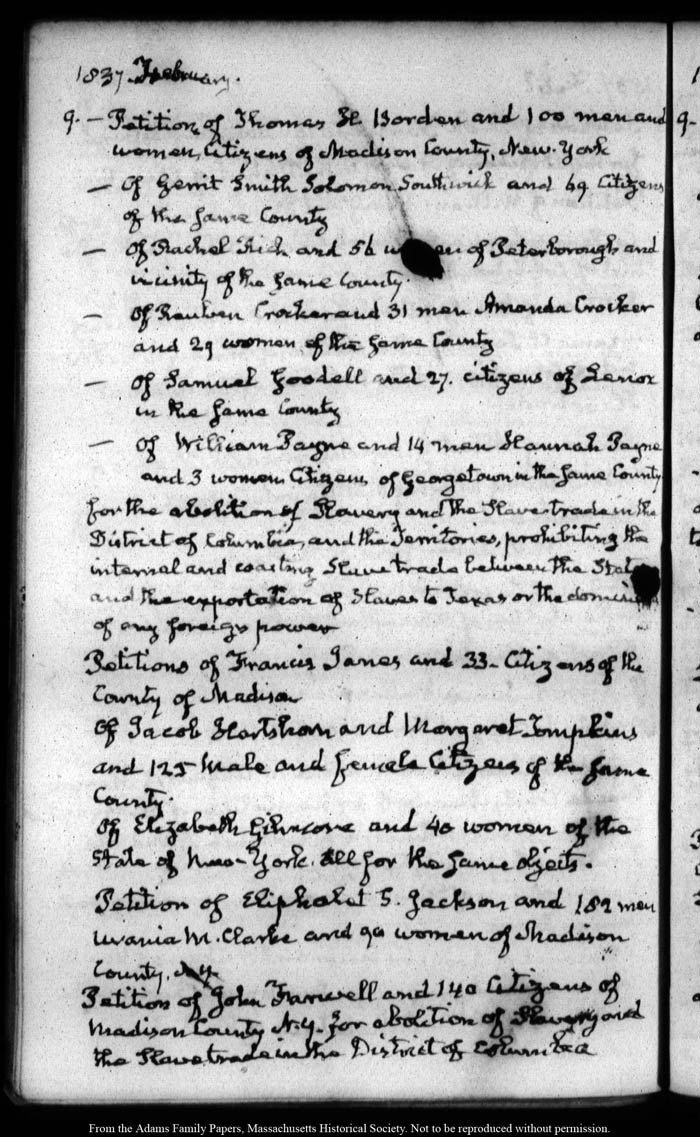 1837 February.
9. — Petition of Thomas H. Borden and 100 men and
women, Citizens of Madison County, New-York
— Of Gerrit Smith Solomon Southwick and 69 Citizens
of the same County
— Of Rachel Rich and 56 women of Peterborough and
vicinity of the same County.
— Of Reuben Crocker and 31 men Amanda Crocker
and 29 women of the same County
— Of Samuel Goodell and 27. citizens of Lenox
in the same County
— Of William Payne and 14 men Hannah Payne
and 3 women Citizens of Georgetown in the same County
for the abolition of Slavery and the Slave trade in the
District of Columbia, and the Territories, prohibiting the
internal and coasting Slave trade between the States
and the exportation of Slaves to Texas or the dominion
of any foreign power
Petitions of Francis Janes and 33- Citizens of the
County of Madison
Of Jacob Hartshorn and Margaret Tompkins
and 125 male and female Citizens of the same
County.
Of Elizabeth Gilmore and 40 women of the
State of New-York. all for the same objects.
Petition of Eliphalet S. Jackson and 182 men
Urania M. Clarke and 90 women of Madison
County, N.Y.
Petition of John Farwell and 140 Citizens of
Madison County N.Y. for abolition of Slavery and
the Slave trade in the District of Columbia
9-
From the Adams Family Papers, Massachusetts Historical Society. Not to be reproduced without permission.